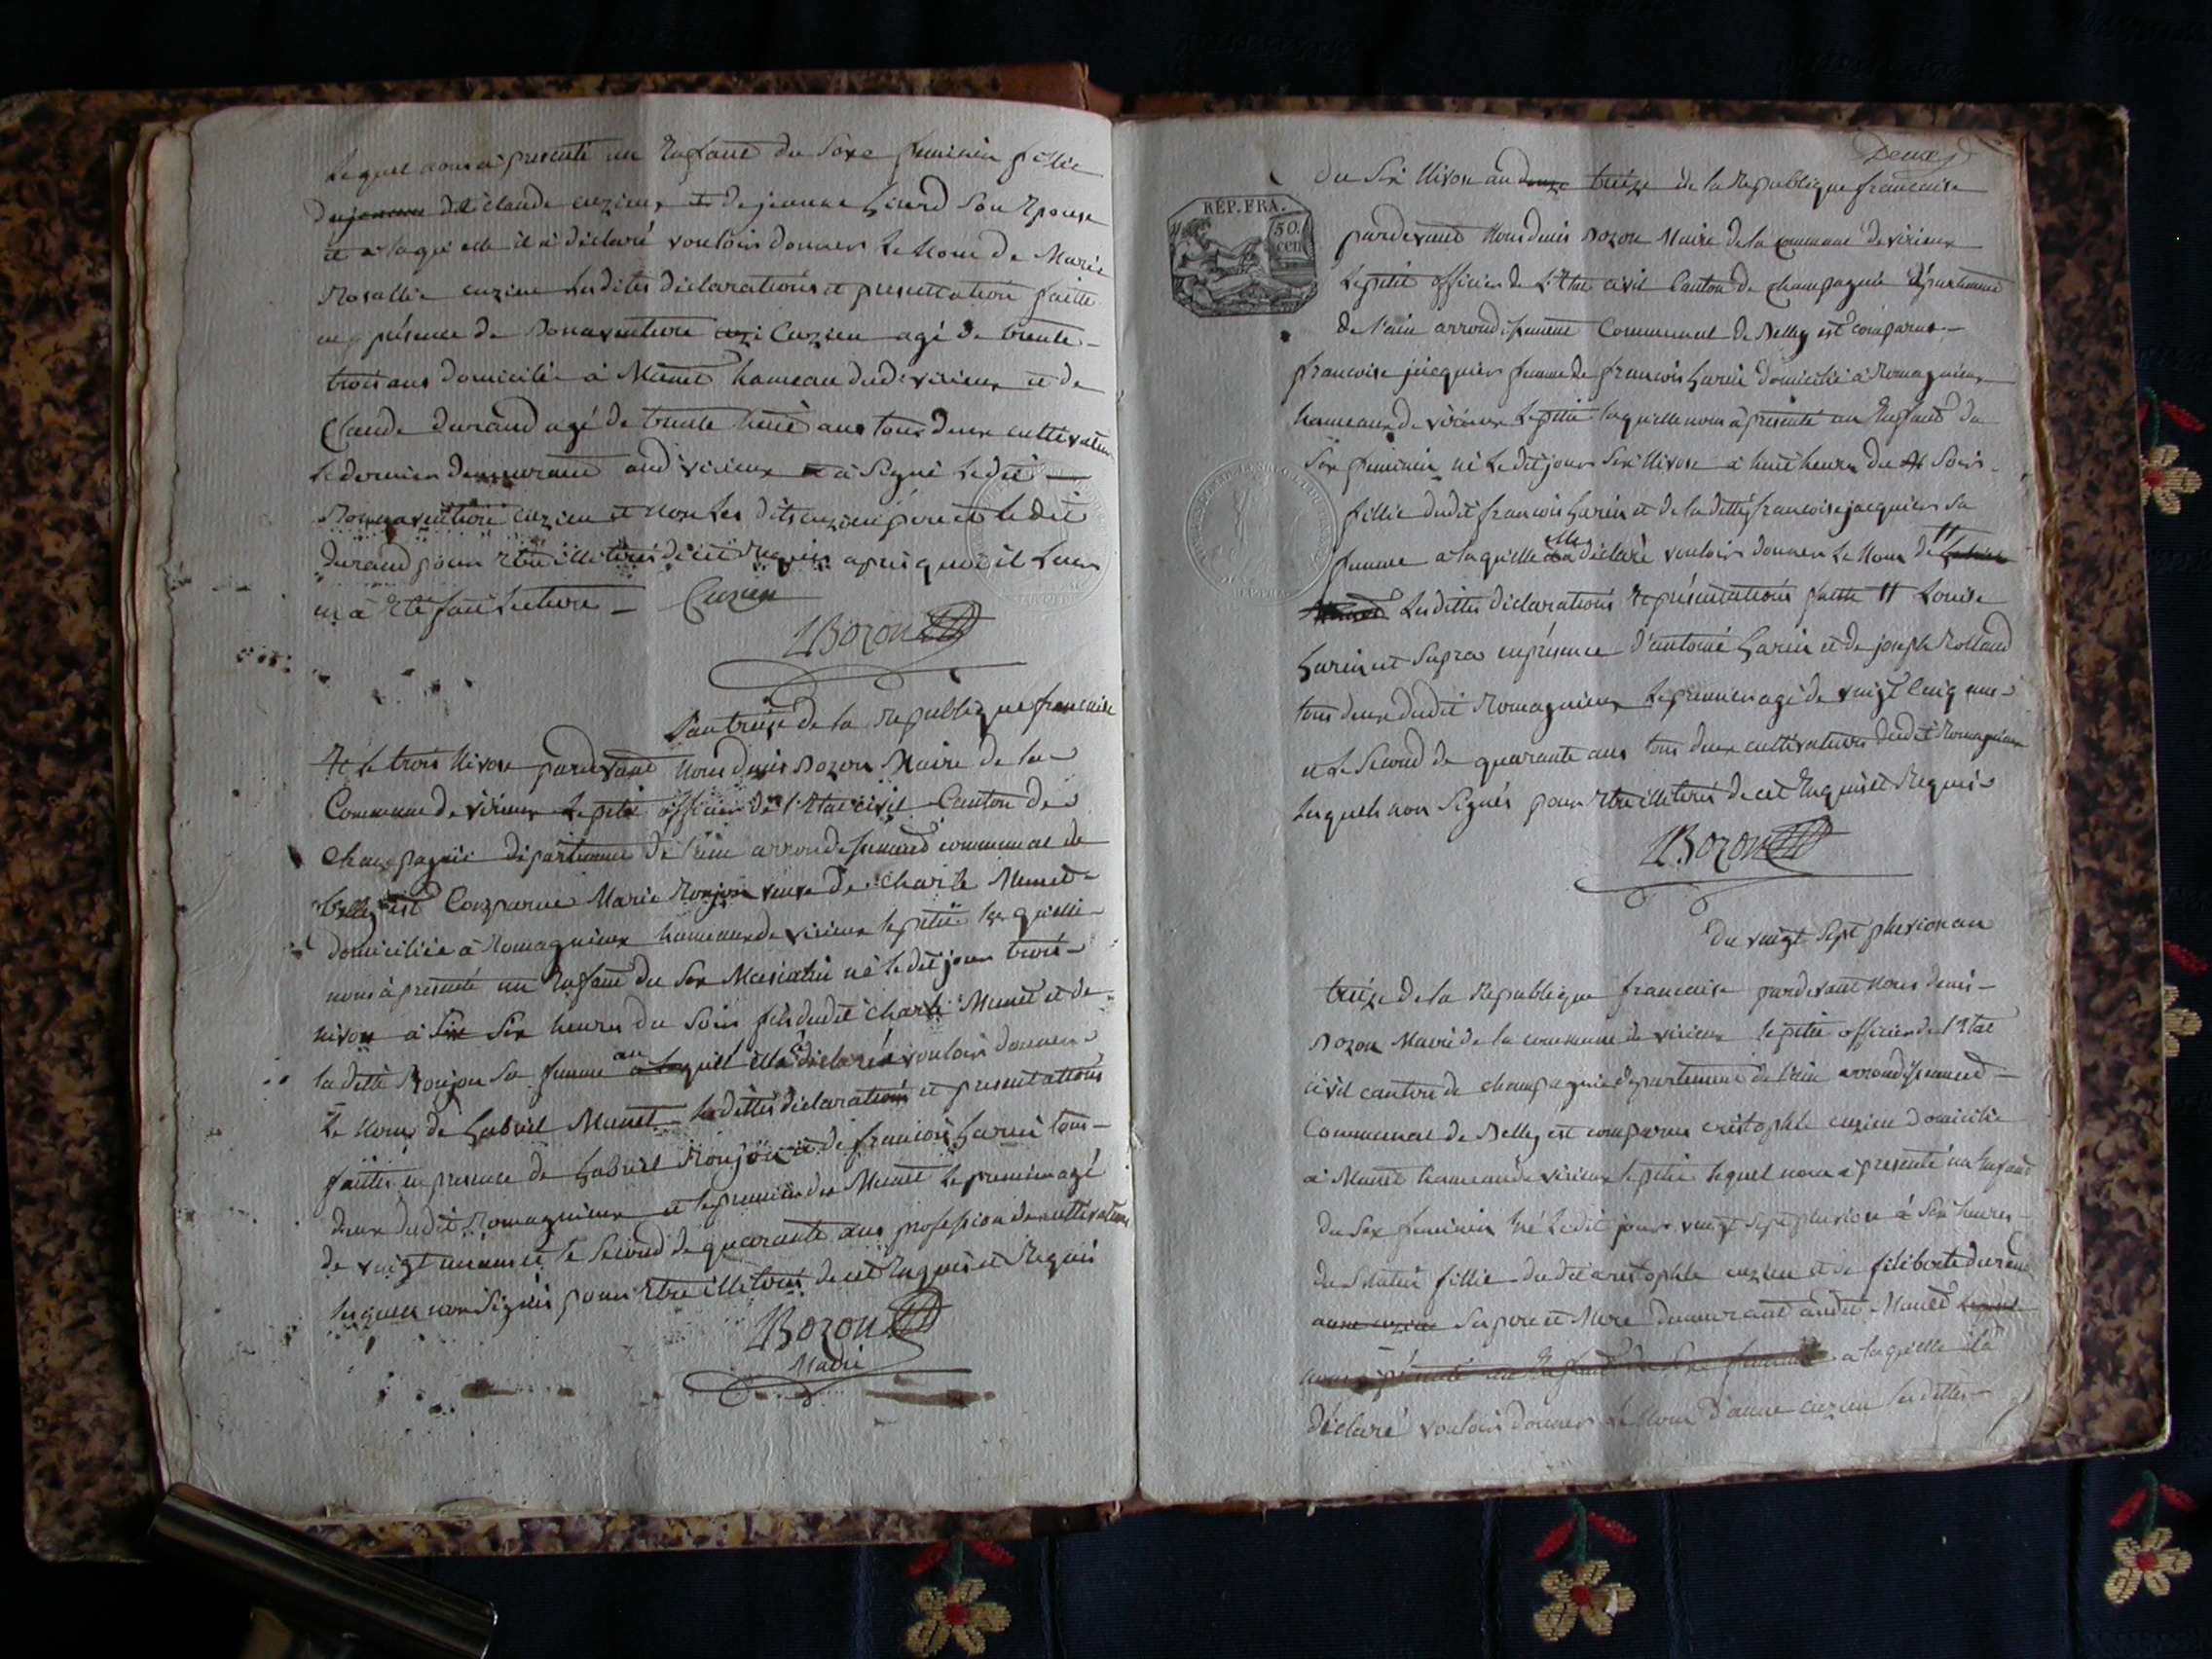 Lequel nous à presenté un Enfant du Sexe feminin fillie
du dit claude cuzieu, et de jeanne Girerd Son Epouse
et a laqu'elle il a déclaré vouloir donner Le Nom de Marie
Rosallie cuzieu Lesdites déclarations et presentation faitte
en présence de Bonaventure cuzi Cuzieu agé de trente
trois ans domicilié à Munet hameau dud. virieux et de
Claude Durand agé de trente huit ans tous deux cultivateurs
Le dernier demeurant aud. virieux et a Signé Ledit
Bonnaventure cuzieu et non Les dits cuzieu pere et le dit
durand pour Etre illiterés de cet Requis apres quoi il Leur
en à Eté fait Lecture
Cuzieu
DBozon
L'an treize de la Republique francaise
Et le trois Nivose pardevant Nous denis Bozon Maire de la
Commune de virieux Lepetit officier de l'Etat civil Canton de
Champagnie département de l'ain arrondissement communal de
belley est Comparue Marie Roujon veuve de charle Munet
domiciliée à Romagnieux hameaux de virieux lepetit laquelle
nous à presenté un Enfant du Sex Masculin né ledit jour trois
nivose à Six Six heures du Soir fils dudit charle Munet et de
la ditte Roujon Sa femme auquel elle à déclaré vouloir donner
Le Nom de Gabriel Munet les dittes déclarations et presentations
faittes en presence de Gabriel Roujon et de francois Garin tous
deux dudit Romagnieux et le premier de Munet Le premier agé
de vingt un ans et le Second de quarante ans profession de cultivateurs
lesquels non Signés pour Etre illiterés de cet Enquis et Requis
DBozon
Madie
Deux
du Six Nivose an douze treize de la Republique francaise
REP. FRA.
50 cen
pardevant Nous denis Bozon Maire de la commune de virieux
Lepetit officier de L'Etat civil Canton de champagnie département
de l'ain arrondissement Communal de Belley est comparue
francoise jacquier femme de francois Garin domicilié à Romagnieux
hameaux de virieux Lepetit laqu'elle nous à presenté un Enfant du
Sex feminin né Ledit jour Six Nivose à huit heures du Soir
fillie dudit francois Garin et de la ditte francoise jacquier Sa
femme a laqu'elle elle a déclaré vouloir donner Le Nom de //
Lesdittes déclarations Et présentations faitte // Louise
Garin ut Supra en présence d'antoine Garin et de joseph Rolland
tous deux dudit Romagnieux Le premier agé de vingt Cinq ans
et Le Second de quarante ans tous deux cultivateurs dudit Romagnieux
lesquels non Signés pour Etre illiterés de cet Enquis et Requis
DBozon
du vingt Sept pluviose an
treize de la Republique francaise pardevant Nous denis
Bozon Maire de la commune de virieux lepetit officier de l'Etat
civil canton de champagnie département de l'ain arrondissement
Communal de Belley est comparus cristophle cuzieu domicilié
à Munet hameau de virieux lepetit lequel nous à presenté un Enfant
du Sex feminin Né Ledit jour vingt Sept pluviose à Six heures
du Matin fillie dudit cristophle cuzieu et de filiberte durand
anne cuzieu Ses pere et Mere demeurant audit Munet Lequel
nous à présenté un Enfant du Sex feminin a laquelle il à
déclaré vouloir donner Le Nom d'anne cuzieu les dittes